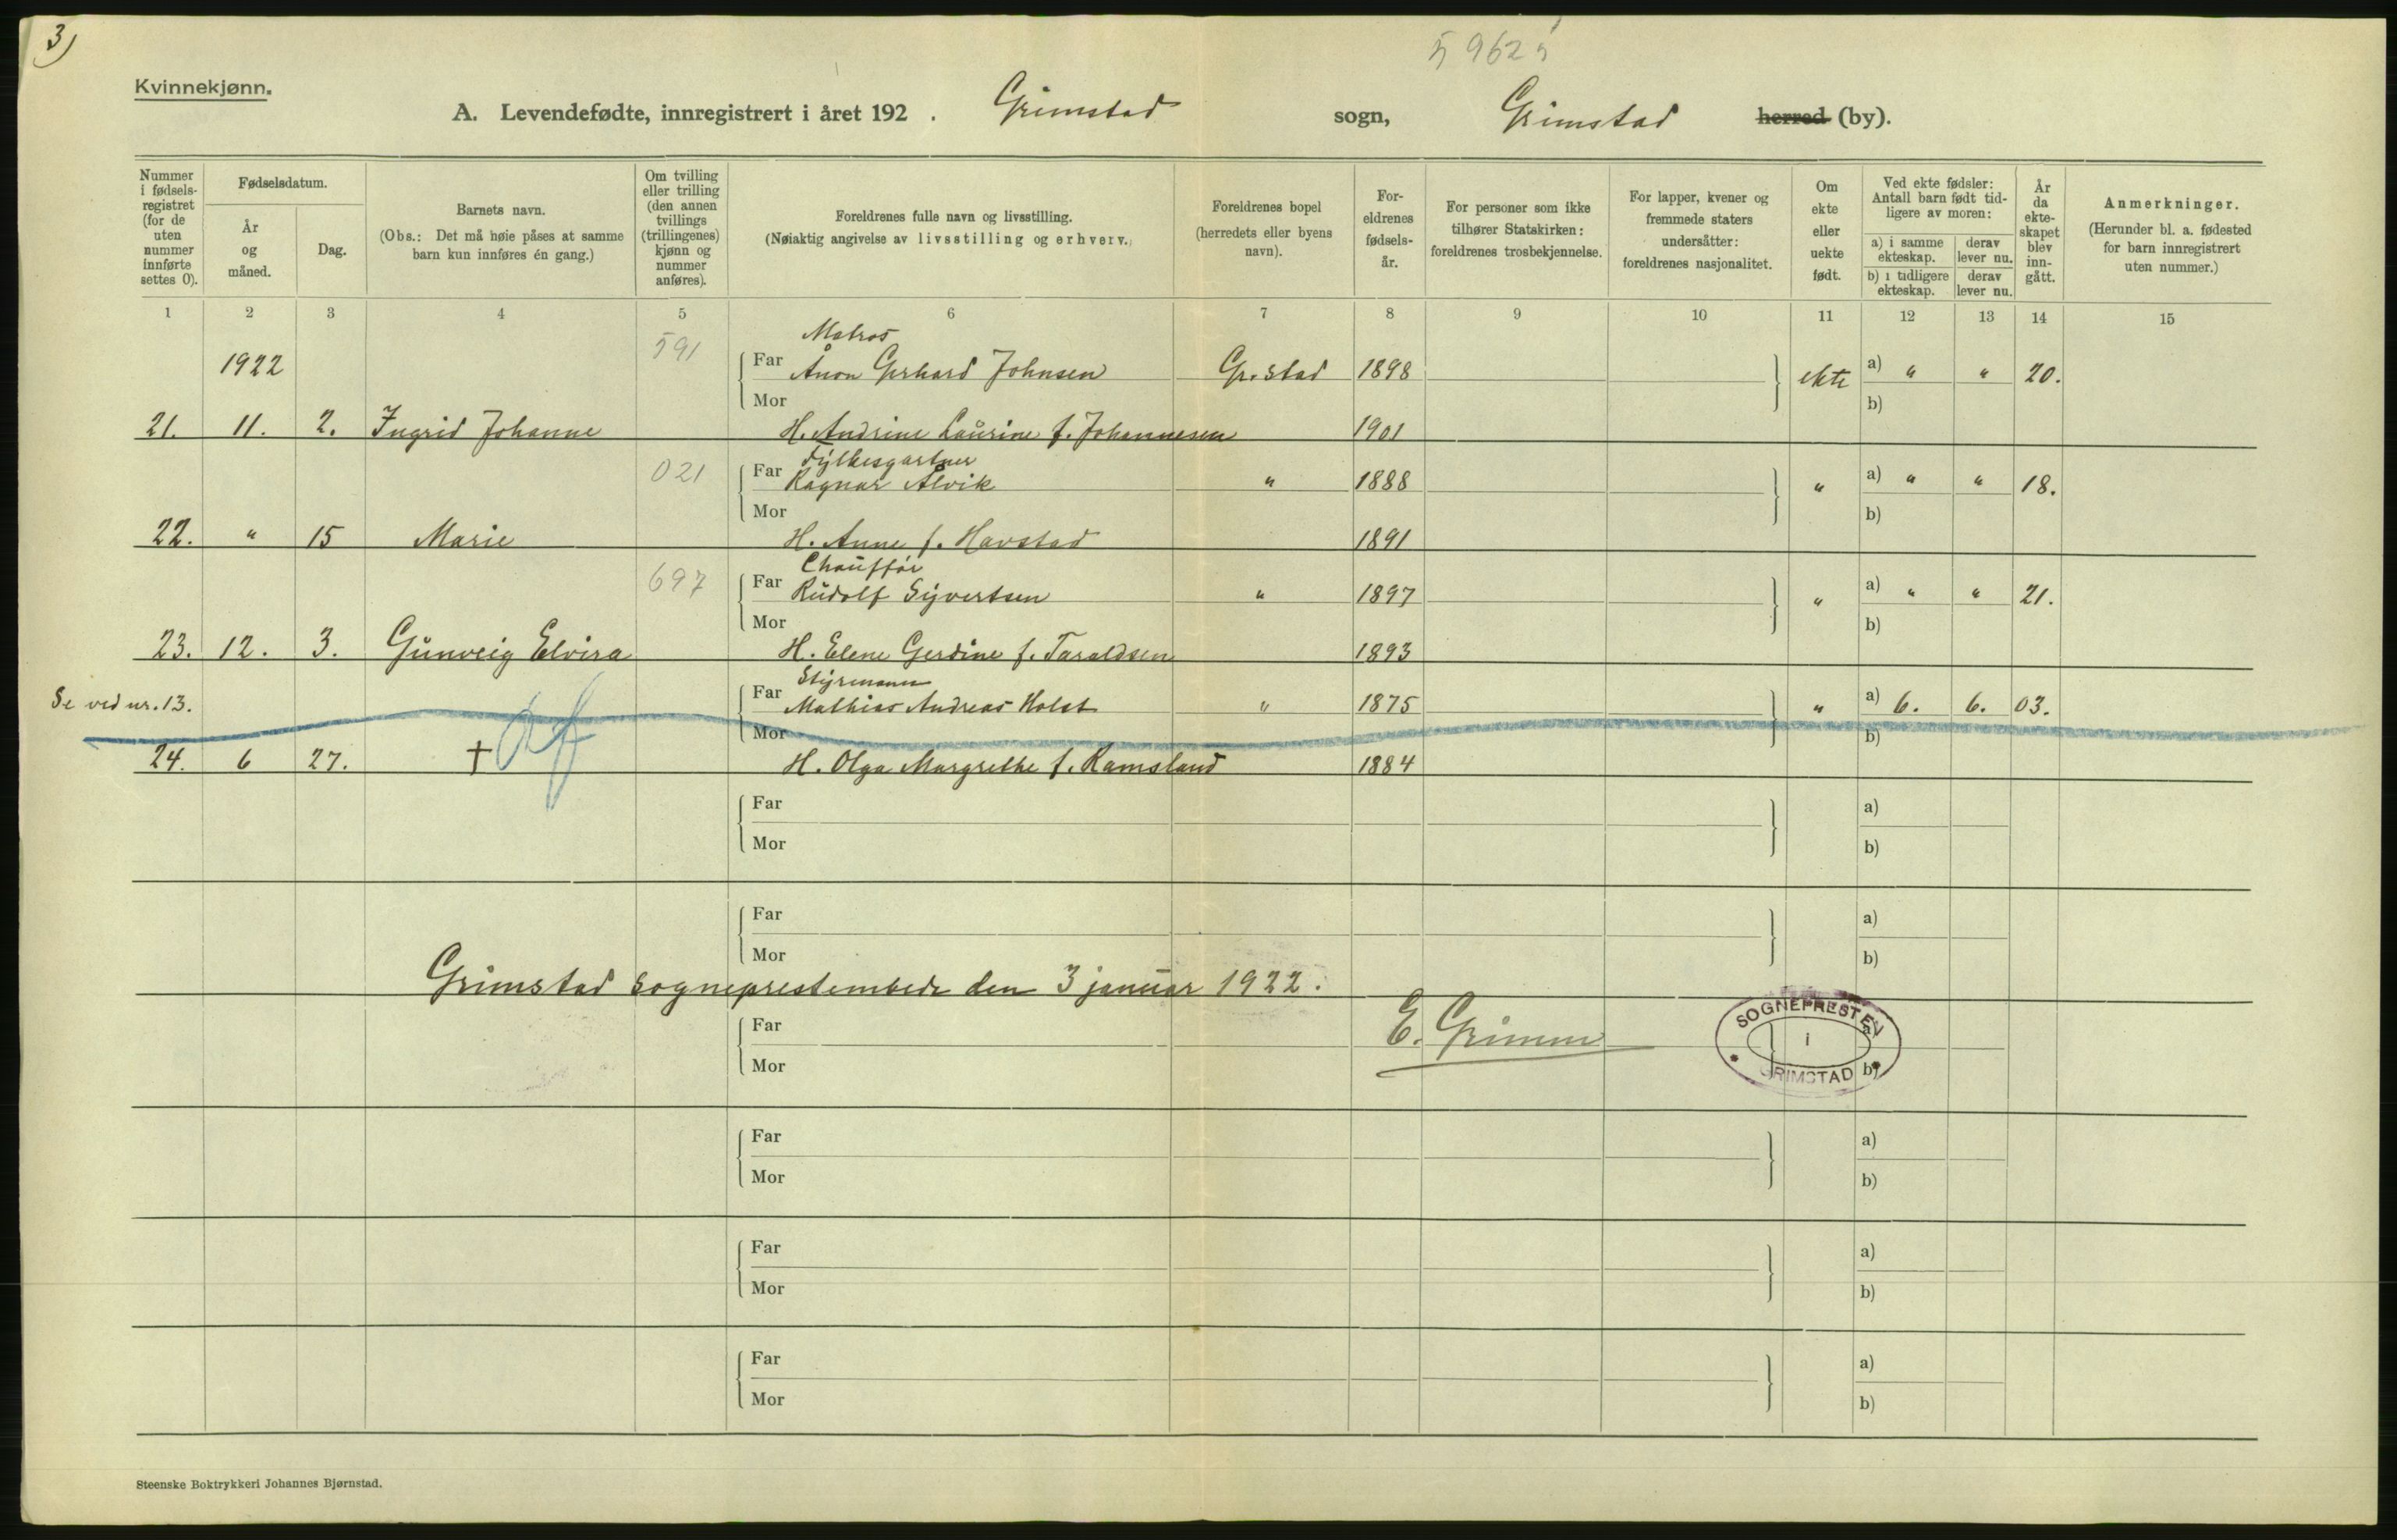 3)
5 962 5
Kvinnekjønn.
A. Levendefødte, innregistrert i året 192 . Grimstad sogn, Grimstad herred (by).
Nummer i fødsels-registret (for de uten nummer innførte settes 0).
Fødselsdatum.
År og måned.
Dag.
Barnets navn.
(Obs.: Det må høie påses at samme barn kun innføres én gang.)
Om tvilling eller trilling (den annen tvillings (trillingenes) kjønn og nummer anføres).
Foreldrenes fulle navn og livsstilling.
(Nøiaktig angivelse av livsstilling og erhverv.)
Foreldrenes bopel (herredets eller byens navn).
For-eldrenes fødsels-år.
For personer som ikke tilhører Statskirken: foreldrenes trosbekjennelse.
For lapper, kvener og fremmede staters undersåtter: foreldrenes nasjonalitet.
Om ekte eller uekte født.
Ved ekte fødsler: Antall barn født tid-ligere av moren:
a) i samme ekteskap.
derav lever nu.
b) i tidligere ekteskap.
derav lever nu.
År da ekte-skapet blev inn-gått.
Anmerkninger.
(Herunder bl. a. fødested for barn innregistrert uten nummer.)
1 2 3 4 5 6 7 8 9 10 11 12 13 14 15
Matros
1922 591 Far Ånon Gerhard Johnsen Gr.stad 1898 ekte a) " " 20.
Mor b)
21. 11. 2. Ingrid Johanne H. Andrine Laurine f. Johannesen 1901
Fylkesgartner
021 Far Ragnar Ålvik " 1888 " a) " " 18.
Mor b)
22. " 15 Marie H. Anne f. Havstad 1891
Chauffør
697 Far Rudolf Syvertsen " 1897 " a) " " 21.
Mor b)
23. 12. 3. Gunveig Elvira H. Elene Gerdine f. Taraldsen 1893
Styrmann
Se ved nr. 13. Far Mathias Andreas Holst " 1875 " a) 6. 6. 03.
Mor b)
24. 6 27. † H. Olga Margrethe f. Ramsland 1884
Far a)
Mor b)
Far a)
Mor b)
Grimstad sogneprestembede den 3 januar 1922.
E. Grimm
SOGNEPRESTEN i GRIMSTAD
Far a)
Mor b)
Far a)
Mor b)
Far a)
Mor b)
Far a)
Mor b)
Steenske Boktrykkeri Johannes Bjørnstad.